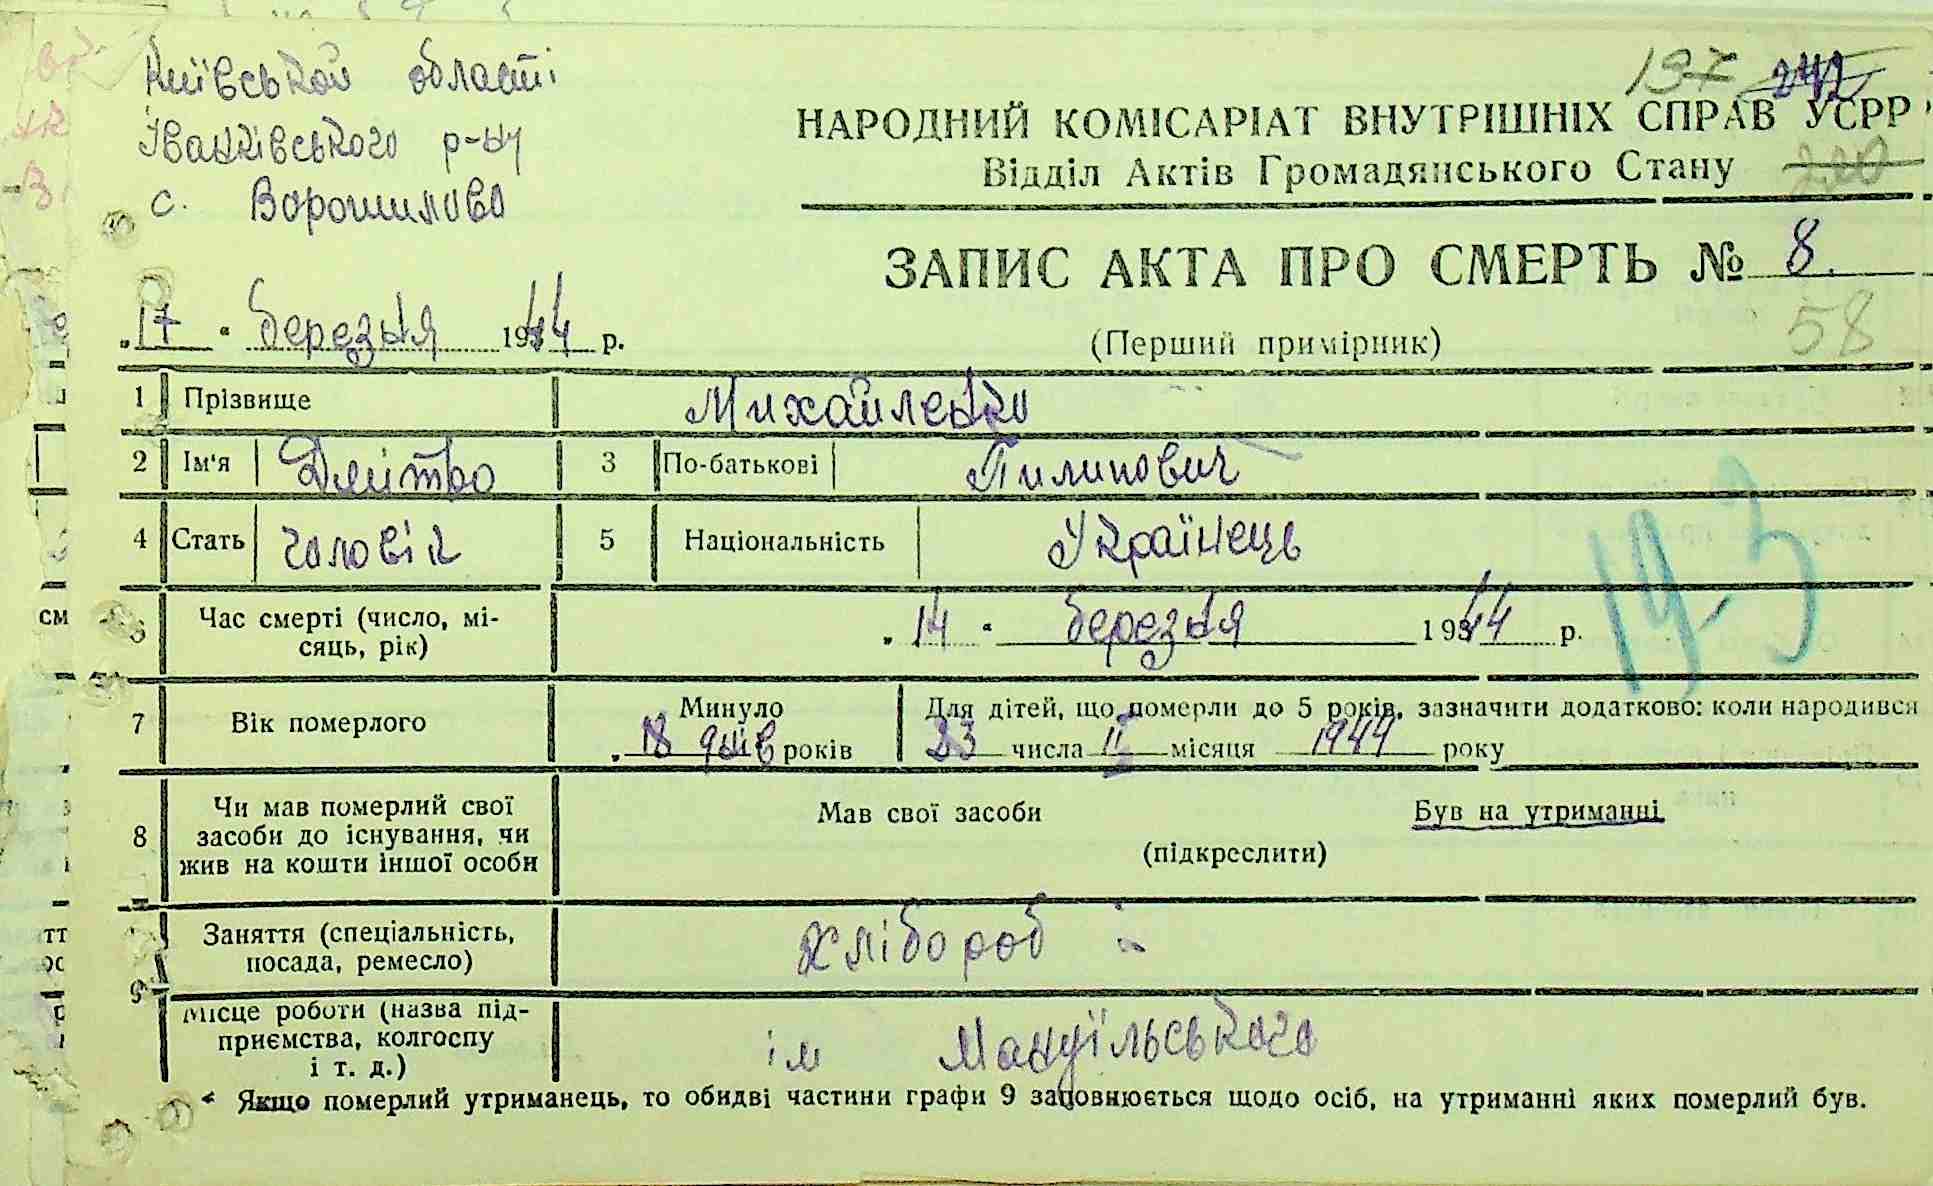 Київської області
Іванківського р-ну
с. Ворошилово
197 242
НАРОДНИЙ КОМІСАРІАТ ВНУТРІШНІХ СПРАВ УСРР
Відділ Актів Громадянського Стану 220
ЗАПИС АКТА ПРО СМЕРТЬ № 8.
„17“ березня 1944 р.
(Перший примірник)
58
1 Прізвище Михайленко
2 Ім'я Дмітро 3 По-батькові Пилипович
4 Стать чоловік 5 Національність Українець
19.3
6 Час смерті (число, мі-
сяць, рік) „14“ березня 1944 р.
7 Вік померлого Минуло 18 днів років
Для дітей, що померли до 5 років, зазначити додатково: коли народився
23 числа II місяця 1944 року
8 Чи мав померлий свої
засоби до існування, чи
жив на кошти іншої особи
Мав свої засоби Був на утриманні
(підкреслити)
9 Заняття (спеціальність,
посада, ремесло) хлібороб
Місце роботи (назва під-
приємства, колгоспу
і т. д.) ім Мануїльського
* Якщо померлий утриманець, то обидві частини графи 9 заповнюється щодо осіб, на утриманні яких померлий був.